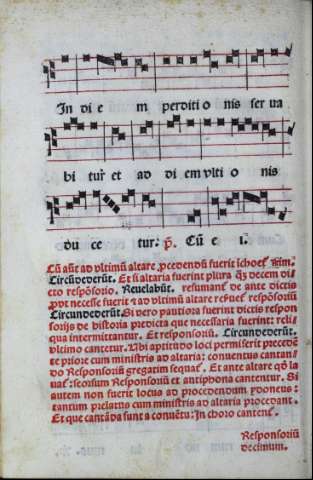 In di e m perditi o nis ser ua
bi tur̃ et ad di em vlti o nis
du ce tur. p̃. Cũ e i.
Cũ aũt ad vltimũ altare ꝓcedendũ fuerit ĩchoet᷑
Circũdederũt. Et si altaria fuerint plura q̃3 decem di
cto respõsorio. Reuelabũt. resumant᷑ de ante dictis
ꝓut necesse fuerit ⁊ ad vltimũ altare respõsoriũ
Circundederũt. Si vero pautiora fuerint dictis respon
sorijs de historia predicta que necessaria fuerint: reli
qua intermittantur. Et responsoriũ. Circundederũt.
vltimo cantetur. Ubi aptitudo loci permiserit precedẽ
te priore cum ministris ad altaria: conuentus cantan
do Responsoriũ gregatim sequat᷑. Et ante altare q̃d la
uat᷑: seorsum Responsoriũ et antiphona cantentur. Si
autem non fuerit locus ad procedendum ydoneus:
tantum prelatus cum ministris ad altaria procedant.
Et que cantãda sunt a conuẽtu: in choro cantent᷑.
Responsoriũ
decimum.